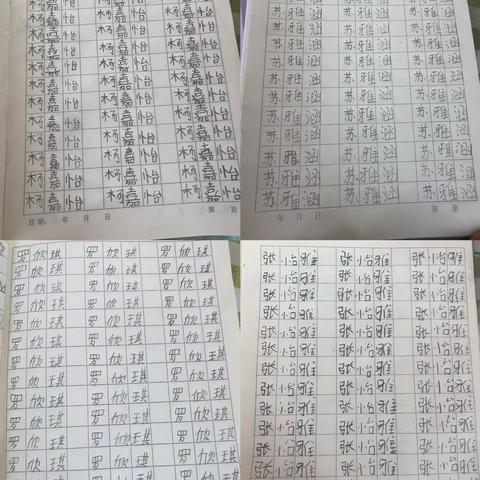 杨嘉怡 杨嘉怡 杨嘉怡
杨嘉怡 杨嘉怡 杨嘉怡
杨嘉怡 杨嘉怡 杨嘉怡
杨嘉怡 杨嘉怡 杨嘉怡
杨嘉怡 杨嘉怡 杨嘉怡
杨嘉怡 杨嘉怡 杨嘉怡
杨嘉怡 杨嘉怡 杨嘉怡
杨嘉怡 杨嘉怡 杨嘉怡
杨嘉怡 杨嘉怡 杨嘉怡
杨嘉怡 杨嘉怡 杨嘉怡
杨嘉怡 杨嘉怡 杨嘉怡
日期: 年 月 日 第 页
苏雅涵 苏雅涵 苏雅涵
苏雅涵 苏雅涵 苏雅涵
苏雅涵 苏雅涵 苏雅涵
苏雅涵 苏雅涵 苏雅涵
苏雅涵 苏雅涵 苏雅涵
苏雅涵 苏雅涵 苏雅涵
苏雅涵 苏雅涵 苏雅涵
苏雅涵 苏雅涵 苏雅涵
苏雅涵 苏雅涵 苏雅涵
苏雅涵 苏雅涵 苏雅涵
年 月 日 第
罗欣琪 罗欣琪 罗欣琪
罗欣琪 罗欣琪 罗欣琪
罗欣琪 罗欣琪 罗欣琪
罗欣琪 罗欣琪 罗欣琪
罗欣琪 罗欣琪 罗欣琪
罗欣琪 罗欣琪 罗欣琪
罗欣琪 罗欣琪 罗欣琪
罗欣琪 罗欣琪 罗欣琪
罗欣琪 罗欣琪 罗欣琪
罗欣琪 罗欣琪 罗欣琪
罗欣琪 罗欣琪 罗欣琪
罗欣琪 罗欣琪 罗欣琪
张怡雅 张怡雅 张怡雅
张怡雅 张怡雅 张怡雅
张怡雅 张怡雅 张怡雅
张怡雅 张怡雅 张怡雅
张怡雅 张怡雅 张怡雅
张怡雅 张怡雅 张怡雅
张怡雅 张怡雅 张怡雅
张怡雅 张怡雅 张怡雅
张怡雅 张怡雅 张怡雅
张怡雅 张怡雅 张怡雅
张怡雅 张怡雅 张怡雅
张怡雅 张怡雅 张怡雅